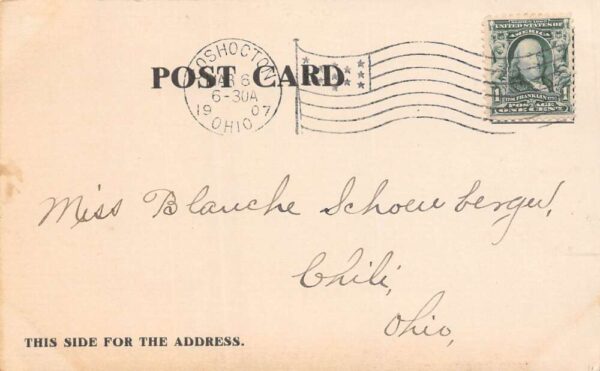 POST CARD
COSHOCTON
MAR 6
6-30A
1907
OHIO
SERIES 1902
UNITED STATES OF AMERICA
FRANKLIN
1 POSTAGE 1
ONE CENT
Miss Blanche Schoenberger,
Chili,
Ohio,
THIS SIDE FOR THE ADDRESS.